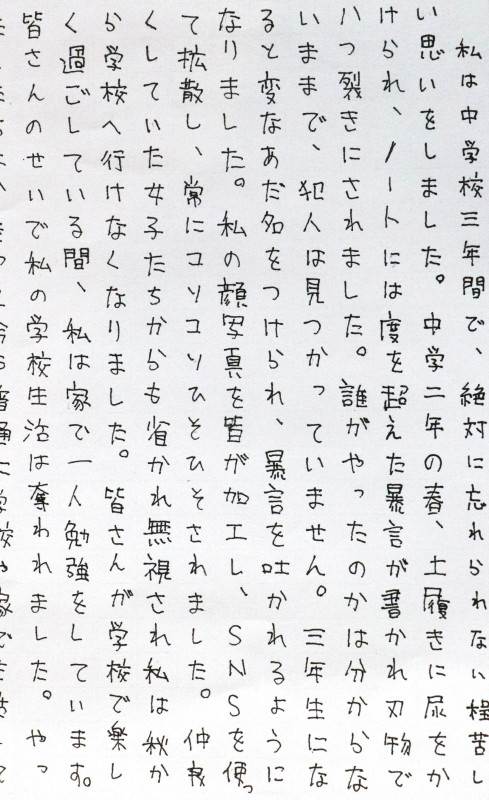 私は中学校三年間で、絶対に忘れられない程苦し
い思いをしました。中学二年の春、土履きに尿をか
けられ、ノートには度を超えた暴言が書かれ刃物で
八つ裂きにされました。誰がやったのかは分からな
いままで、犯人は見つかっていません。三年生にな
ると変なあだ名をつけられ、暴言を吐かれるように
なりました。私の顔写真を皆が加工し、SNSを使っ
て拡散し、常にコソコソひそひそされました。仲良
くしていた女子たちからも省かれ無視され私は秋か
ら学校へ行けなくなりました。皆さんが学校で楽し
く過ごしている間、私は家で一人勉強をしています。
皆さんのせいで私の学校生活は奪われました。やっ